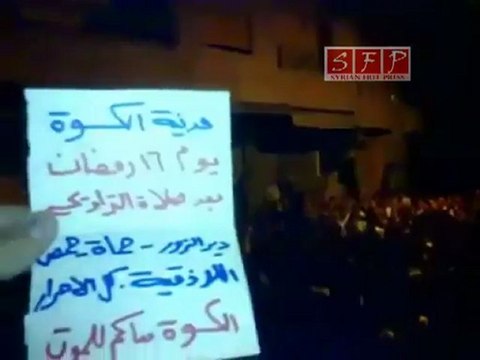 SFP
SYRIAN FREE PRESS
مدينة الكسوة
يوم ١٦ رمضان
بعد صلاة التراويح
ديرالزور - حماة - حمص
اللاذقية . كل الاحرار
الكسوة معاكم للموت